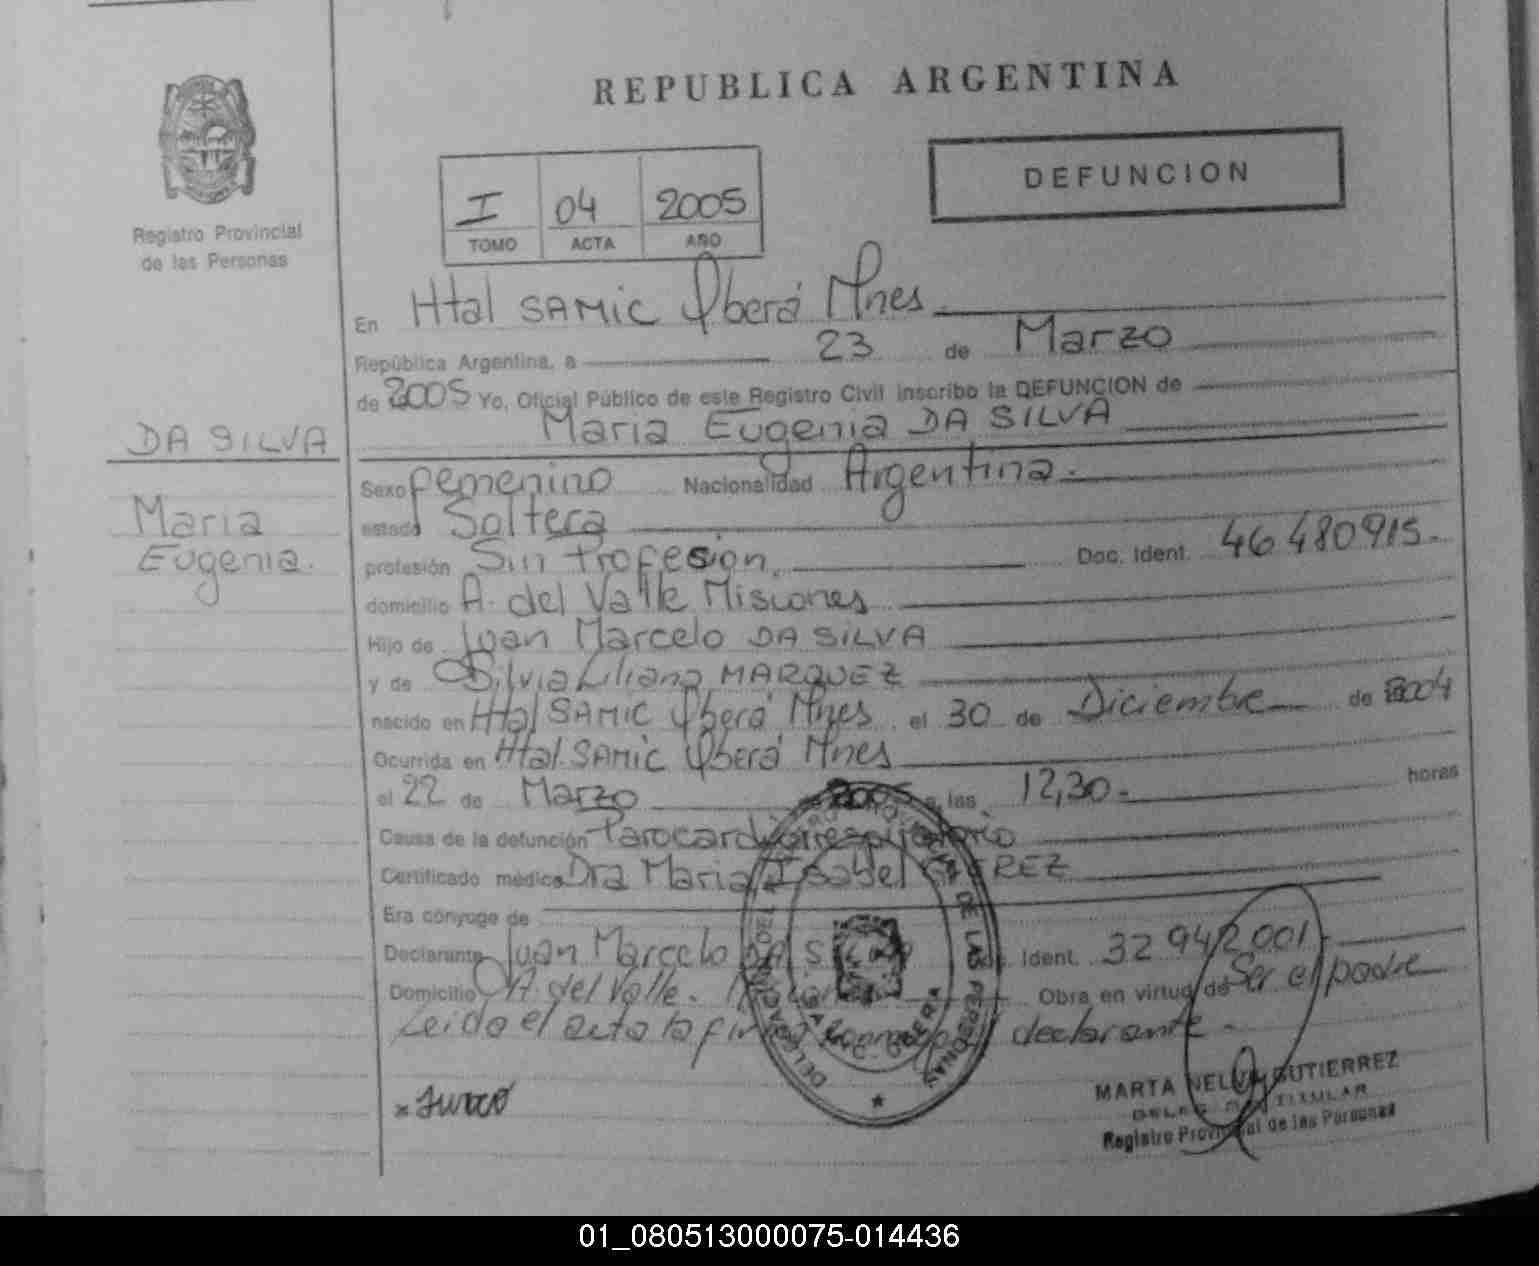 REPUBLICA ARGENTINA
DEFUNCION
I 04 2005
TOMO ACTA AÑO
Registro Provincial
de las Personas
En Htal SAMIC Oberá Mnes
República Argentina, a 23 de Marzo
de 2005 Yo, Oficial Público de este Registro Civil inscribo la DEFUNCION de
Maria Eugenia DA SILVA
DA SILVA
Maria
Eugenia.
Sexo femenino Nacionalidad Argentina.
estado Soltera
profesión Sin Profesion Doc. Ident. 46480915.
domicilio A. del Valle Misiones
Hijo de Juan Marcelo DA SILVA
y de Silvia Liliana MARQUEZ
nacido en Htal SAMIC Oberá Mnes el 30 de Diciembre de 2004
Ocurrida en Htal. SAMIC Oberá Mnes
el 22 de Marzo 2005 a las 12,30. horas
Causa de la defunción Parocardiorrespiratorio
Certificado médico Dra Maria Isabel
Era cónyuge de
Declarante Juan Marcelo DA SILVA Doc. Ident. 32942001
Domicilio A. del Valle. Obra en virtud de Ser el padre
Leido el acta la firma declarante.
DELEGACION DEL REGISTRO PROVINCIAL DE LAS PERSONAS
MARTA NELVA GUTIERREZ
TITULAR
Registro Provincial de las Personas
01_080513000075-014436